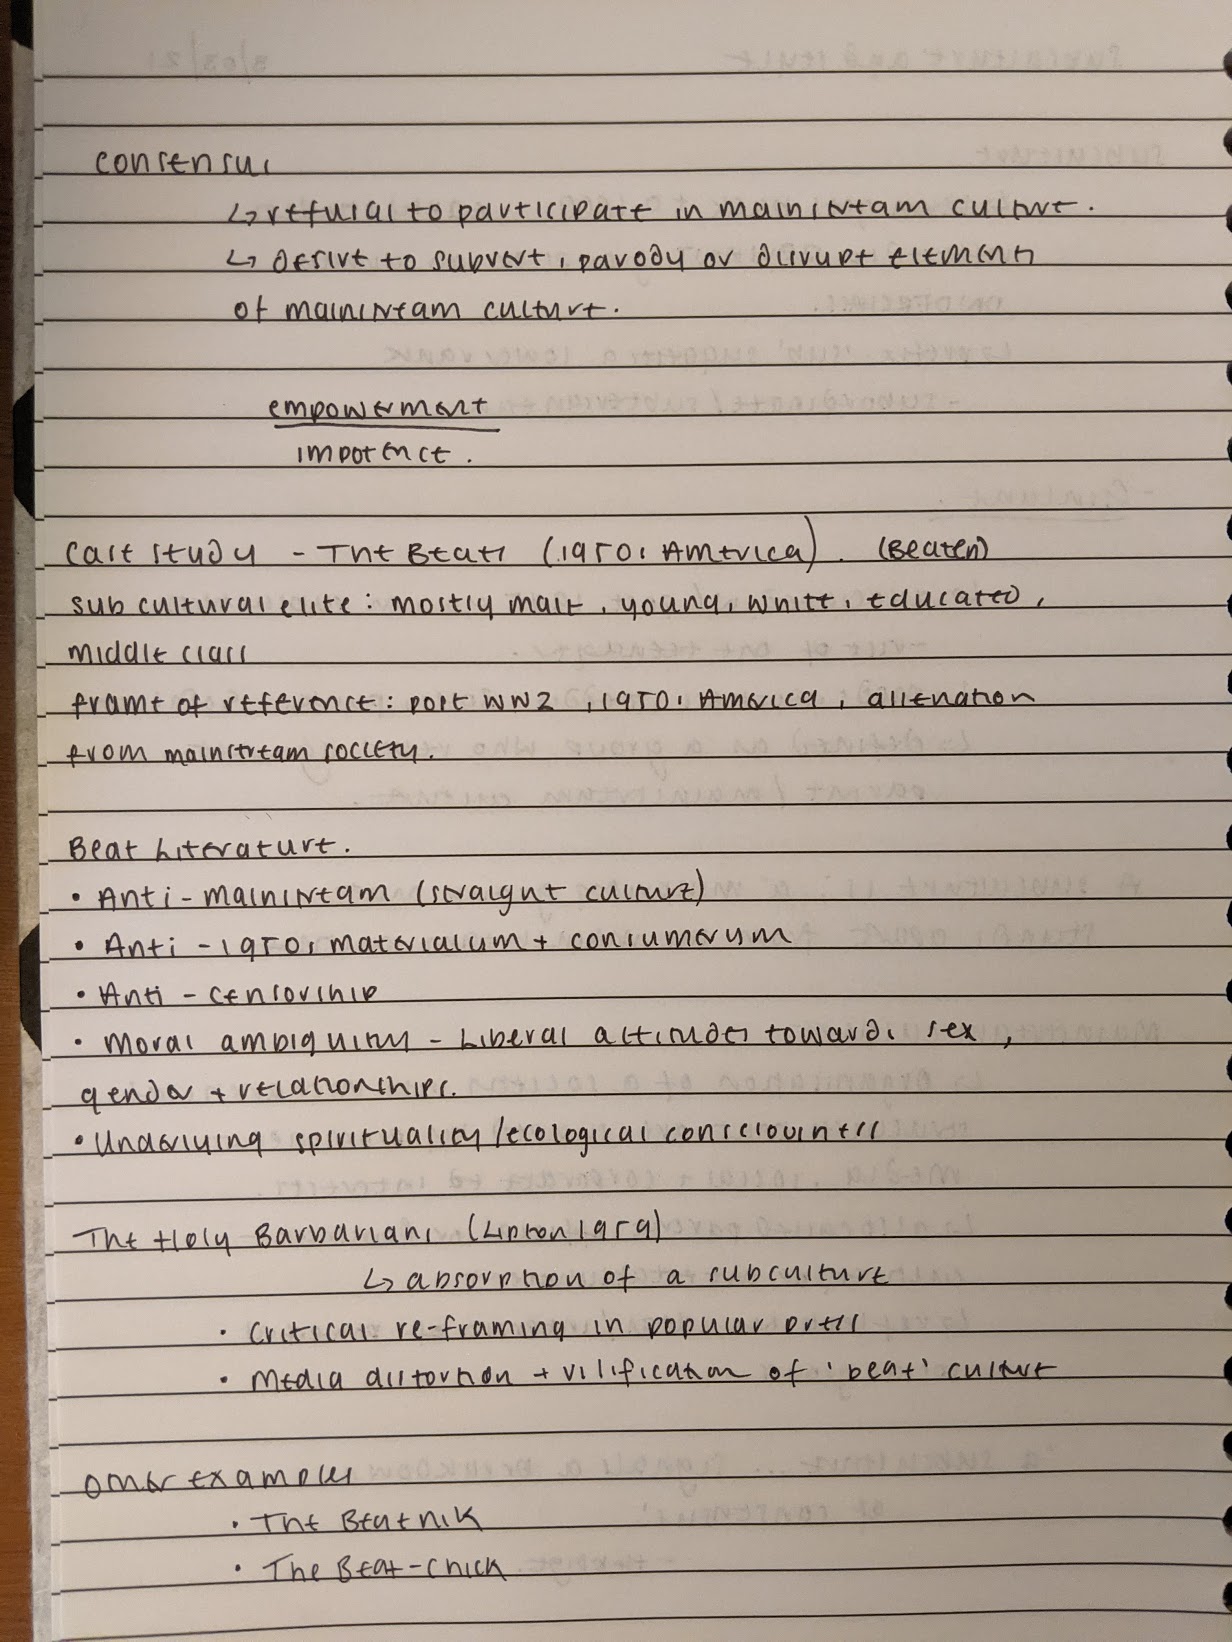 consensus
↳ refusal to participate in mainstream culture.
↳ desire to subvert, parody or disrupt elements
of mainstream culture.
empowerment
impotence.
Case study - The Beats (1950s America). (Beaten)
sub cultural elite: mostly male, young, white, educated,
middle class
frame of reference: post WW2, 1950s America, alienation
from mainstream society.
Beat Literature.
• Anti-mainstream (straight culture)
• Anti-1950s materialism + consumerism
• Anti-censorship
• Moral ambiguity - Liberal attitudes towards sex,
gender + relationships.
• Underlying spirituality/ecological consciousness
The Holy Barbarians (Lipton 1959)
↳ absorption of a subculture
• Critical re-framing in popular press
• Media distortion + vilification of 'beat' culture
other examples
• The Beatnik
• The Beat-chick